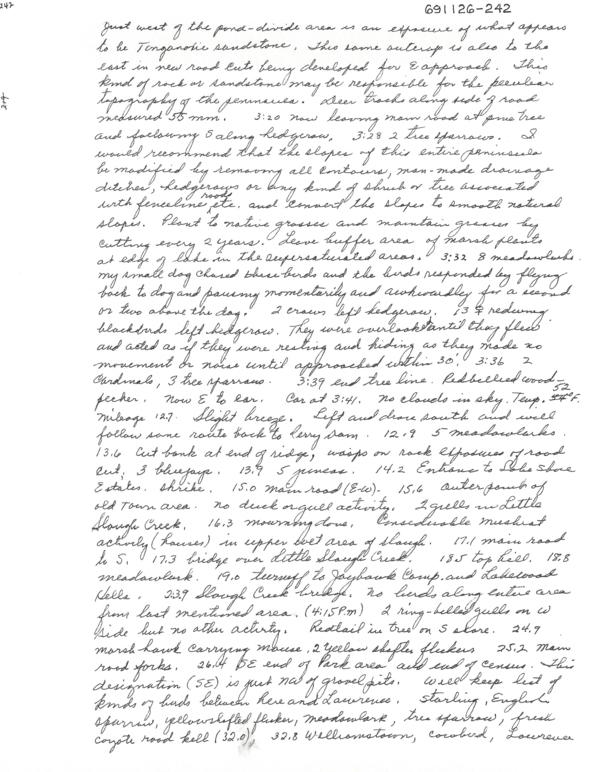 242
691126-242
Just west of the pond-divide area is an exposure of what appears
to be Tonganoxie sandstone. This same outcrop is also to the
east in new road cuts being developed for E approach. This
kind of rock or sandstone may be responsible for the peculiar
topography of the peninsula. Deer tracks along side of road
measured 55 mm. 3:20 now leaving main road at pine tree
and following S along hedgerow. 3:28 2 tree sparrows. I
would recommend that the slopes of this entire peninsula
be modified by removing all contours, man-made drainage
ditches, hedgerows or any kind of shrub or tree associated
with fenceline, roads etc. and convert the slopes to smooth natural
slopes. Plant to native grasses and maintain grasses by
cutting every 2 years. Leave buffer area of marsh plants
at edge of lake in the supersaturated areas. 3:32 8 meadowlarks.
my small dog chased these birds and the birds responded by flying
back to dog and pausing momentarily and awkwardly for a second
or two above the dog. 2 crows left hedgerow. 13 ♀ redwing
blackbirds left hedgerow. They were overlooked until they flew
and acted as if they were resting and hiding as they made no
movement or noise until approached within 30'. 3:36 2
Cardinals, 3 tree sparrows. 3:39 end tree line. Redbellied wood-
pecker. Now E to car. Car at 3:41. No clouds in sky. Temp. 52°F.
mileage 12.7. Slight breeze. Left and drove south and will
follow same route back to Perry Dam. 12.9 5 meadowlarks.
13.6 Cut bank at end of ridge, wasps on rock exposures of road
cut, 3 bluejays. 13.9 5 juncos. 14.2 Entrance to Lake Shore
Estates. Shrike. 15.0 main road (E-W). 15.6 Outer point of
old town area. no duck or gull activity. 2 gulls in Little
Slough Creek. 16.3 mourning dove. Considerable muskrat
activity (houses) in upper wet area of slough. 17.1 main road
to S. 17.3 bridge over Little Slough Creek. 18.5 top hill. 18.8
meadowlark. 19.0 turnoff to Jayhawk Camp and Lakewood
Hills. 23.9 Slough Creek bridge. No birds along entire area
from last mentioned area. (4:15 P.m) 2 ring-billed gulls on W
side but no other activity. Redtail in tree on S shore. 24.9
marsh hawk carrying mouse, 2 yellow shafted flickers 25.2 main
road forks. 26.4 SE end of Park area and end of census. This
designation (SE) is just NW of gravel pits. Will keep list of
kinds of birds between here and Lawrence. Starling, English
sparrow, yellowshafted flicker, meadowlark, tree sparrow, fresh
coyote road kill (32.0), 32.8 Williamstown, cowbird, Lawrence